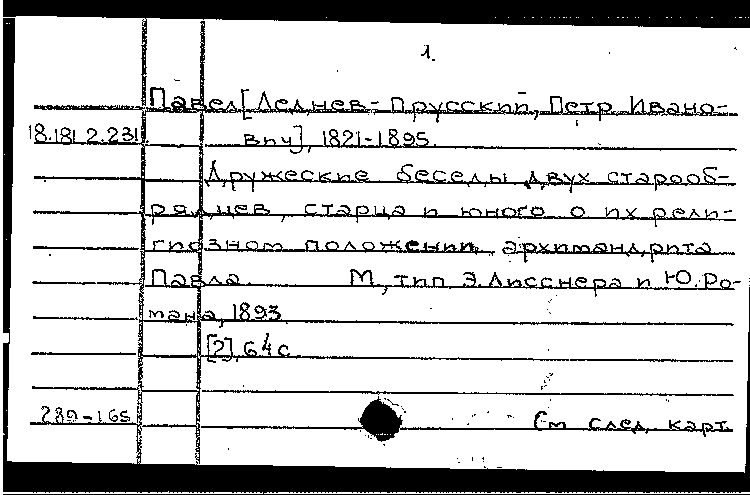 1.
Павел [Леднев-Прусский, Петр Ивано-
18.181.2.231 вич], 1821-1895.
Дружеские беседы двух старооб-
рядцев, старца и юного о их рели-
гиозном положении, архимандрита
Павла. М., тип Э. Лисснера и Ю. Ро-
мана, 1893
[2], 64 с.
289-165 См след. карт.